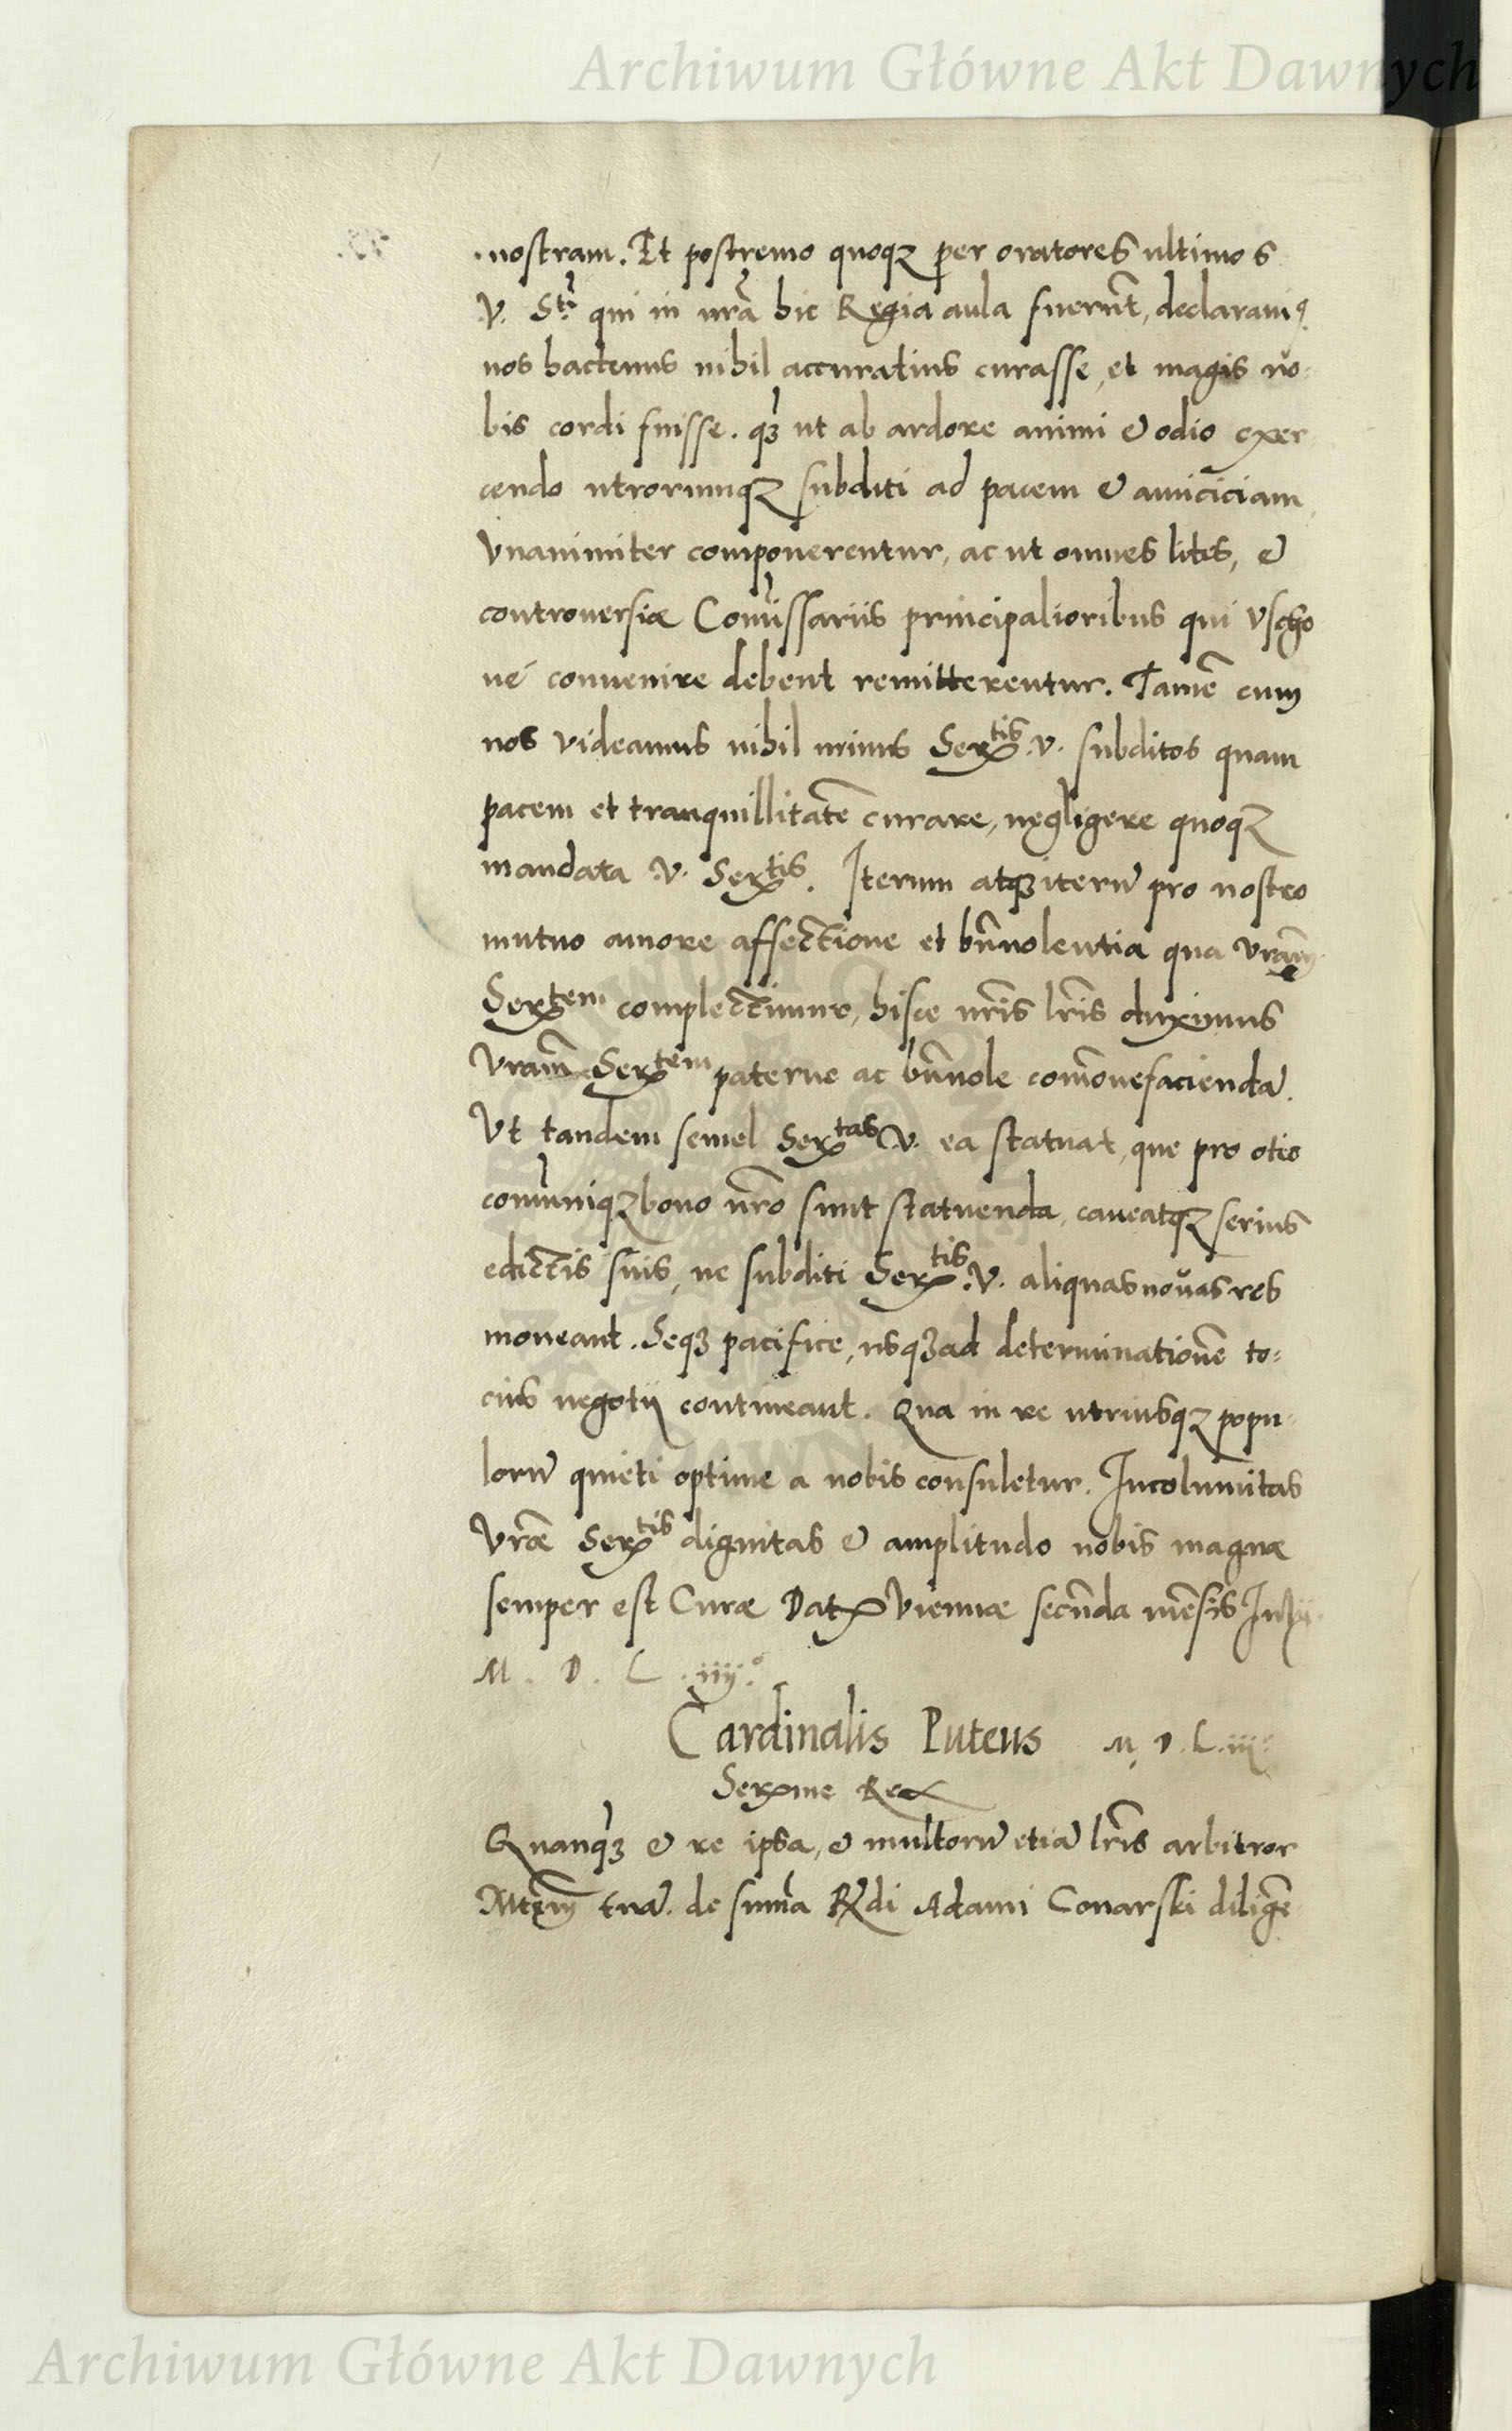 Archiwum Główne Akt Dawnych
nostram. Et postremo quoqꝫ per oratores ultimos
V. Stis qui in nrã hic Regia aula fuerũt, declarauiꝰ
nos hactenus nihil accuratius curasse, et magis no-
bis cordi fuisse. qꝫ ut ab ardore animi & odio exer
cendo utrorumqꝫ subditi ad pacem & amiciciam
Vnanimiter componerentur, ac ut omnes lites, &
controuersiæ Comissariis principalioribus qui Vscho
ué conuenire debent remitterentur. Tamẽ cum
nos videamus nihil minus Serᵗⁱˢ. V. subditos quam
pacem et tranquillitatẽ curare, negligere quoqꝫ
mandata V. Serᵗⁱˢ. Iterum atqꝫ iterũ pro nostro
mutuo amore affectione et bñuolentia qua Vrãm
Serᵗᵉᵐ complectimur, hisce nr̃is lr̃is duximus
Vrãm Serᵗᵉᵐ paterne ac bñuole com̃onefaciendã.
Vt tandem semel Serᵗᵃˢ V. ea statuat, que pro otio
comuniqꝫ bono nr̃o sunt statuenda, caueatqꝫ serius
edictis suis, ne subditi Serᵗⁱˢ. V. aliquas nouas res
moueant. Seqꝫ pacifice, usqꝫ ad determinationẽ to-
cius negotij contineant. Qua in re utriusqꝫ popu-
lorũ quieti optime a nobis consuletur. Incolumitas
Vræ̃ Serᵗⁱˢ dignitas & amplitudo nobis magnæ
semper est Curæ Dat Viennæ secũda mẽsis Julij
M. D. L. iiij.°
Cardinalis Puteus M. D. L. iij°
Serme Rex
Quanqꝫ & re ipsa, & multorũ etiã lr̃is arbitror
Mtem̃ tuã. de sum̃a Rdi Adami Conarski diligẽ-
Archiwum Główne Akt Dawnych